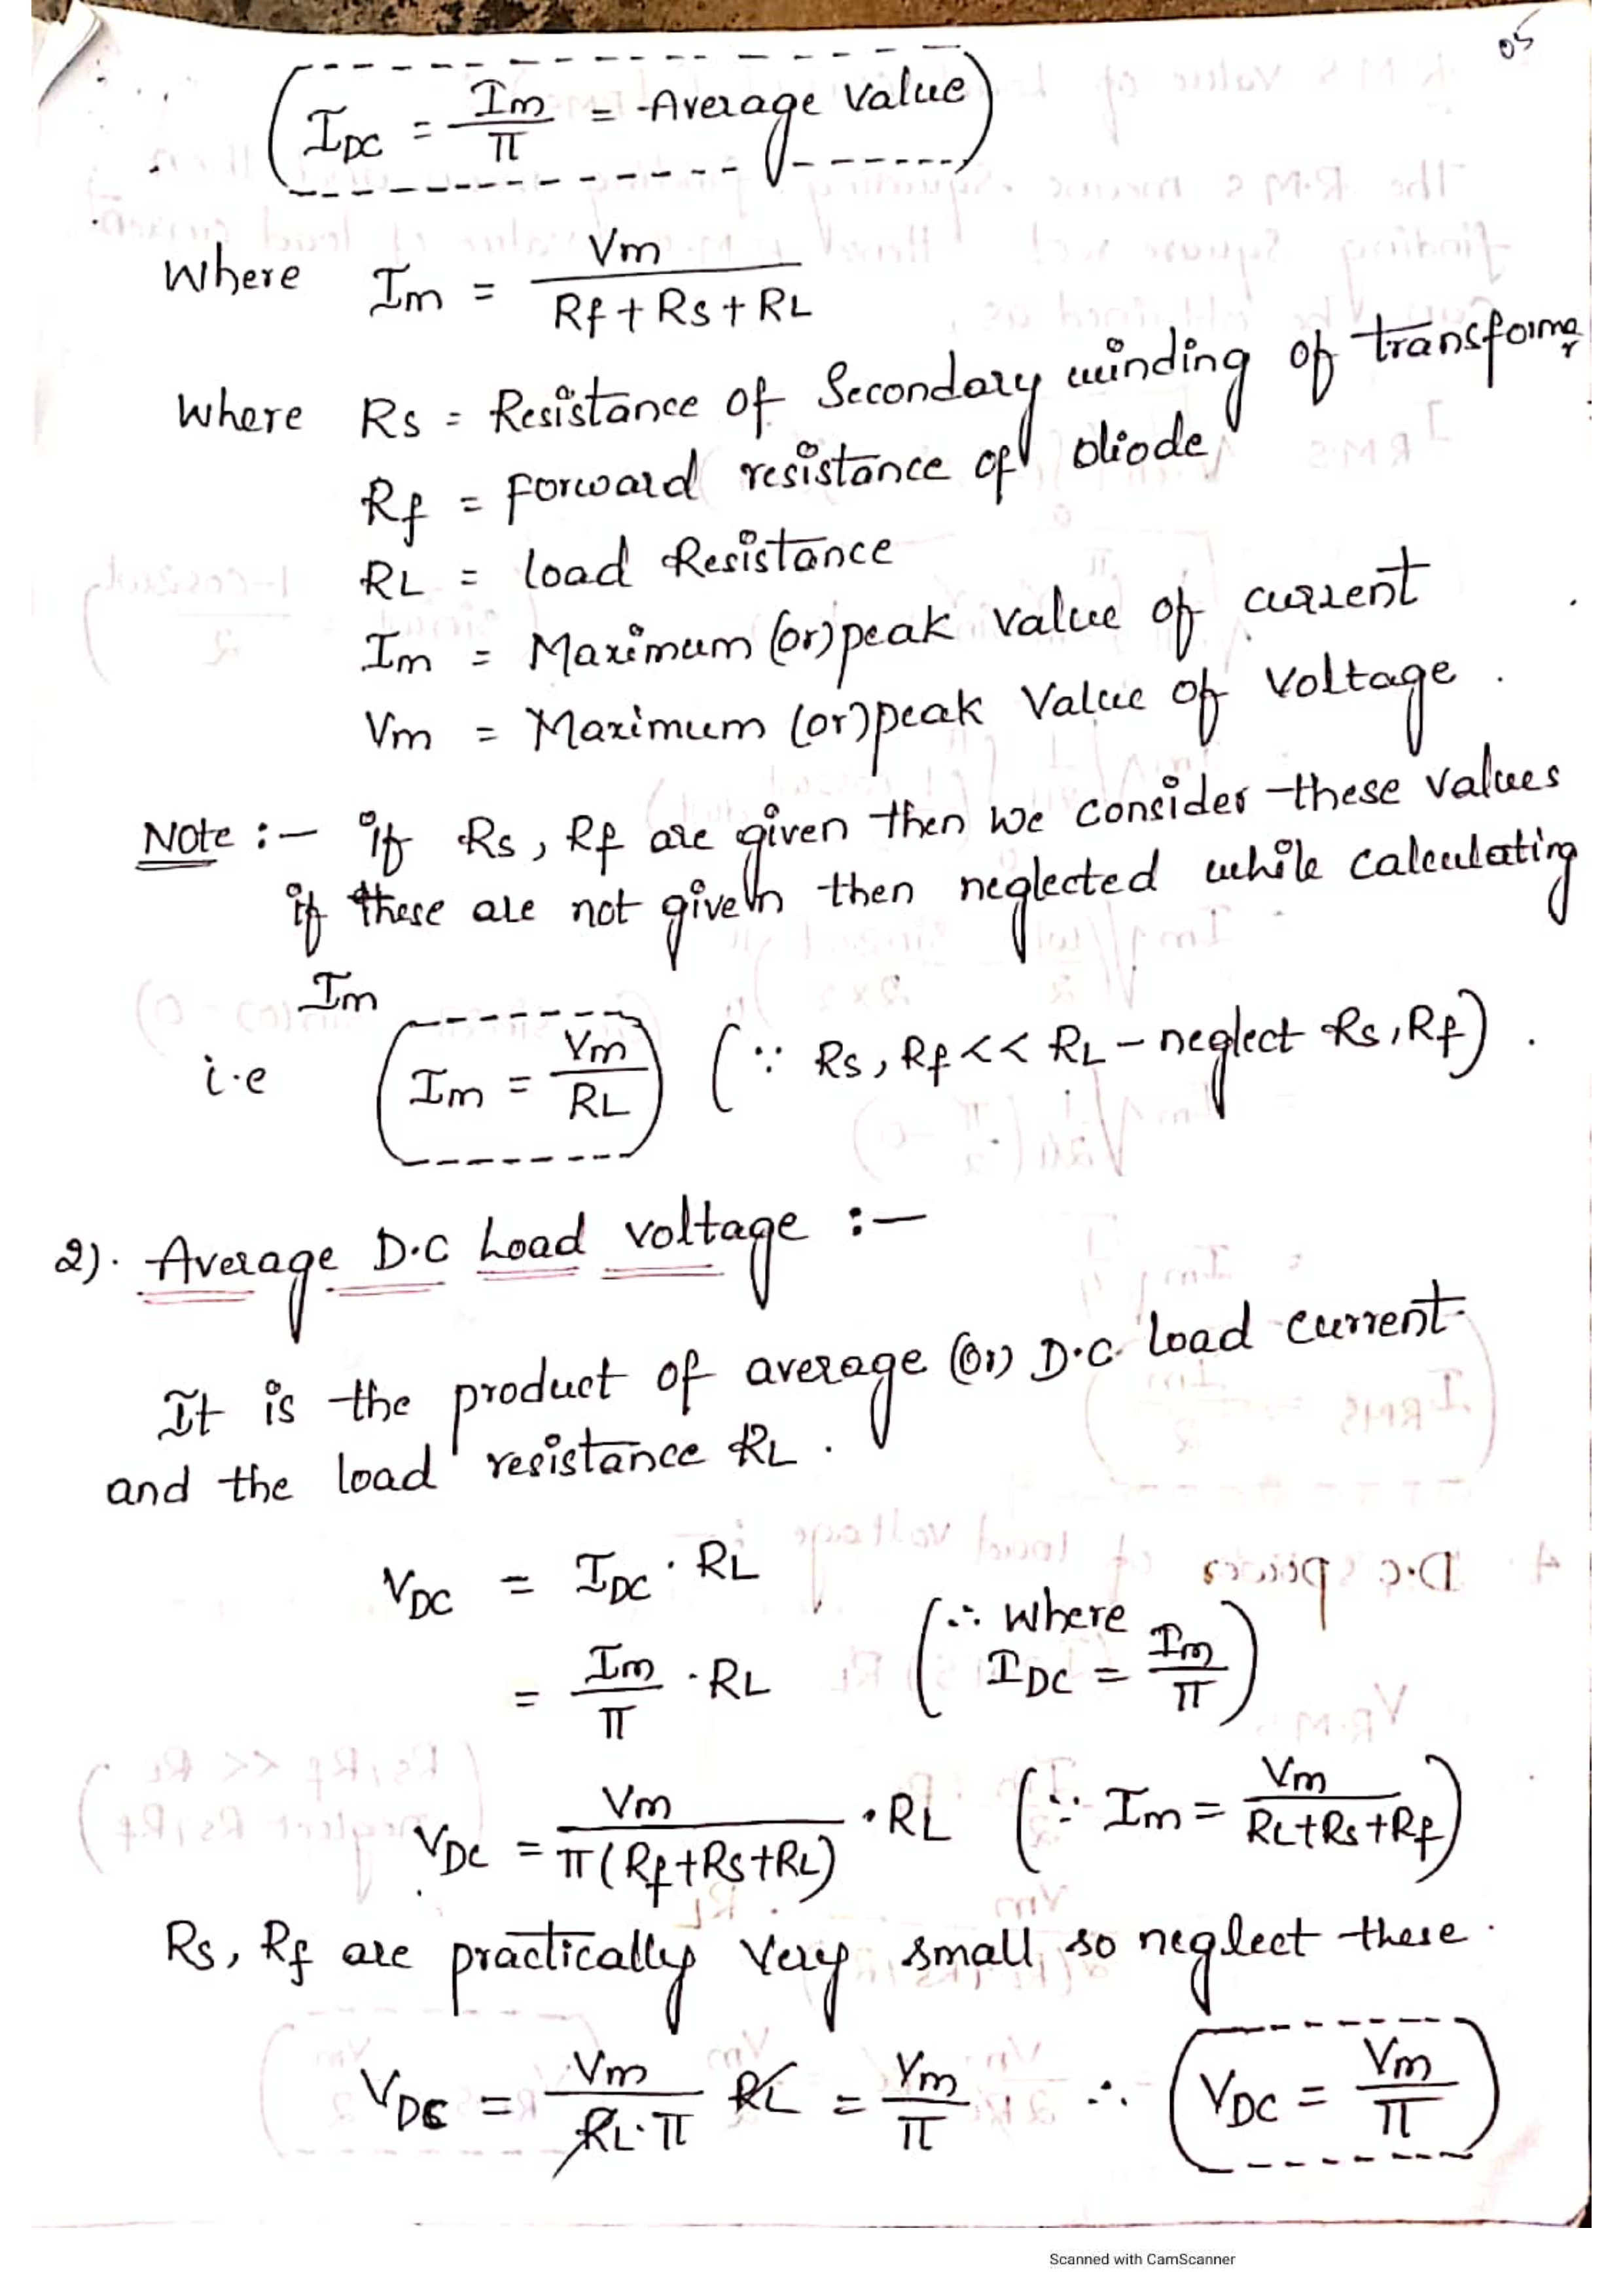 05
I_DC = Im/π = Average Value
Where Im = Vm/(Rf + Rs + RL)
Where Rs = Resistance of Secondary winding of transformer
Rf = Forward resistance of diode
RL = load Resistance
Im = Maximum (or) peak value of current
Vm = Maximum (or) peak Value of Voltage.
Note :- if Rs, Rf are given then we consider these values
if these are not given then neglected while calculating
Im
i.e Im = Vm/RL (∵ Rs, Rf << RL - neglect Rs, Rf).
2). Average D.C Load voltage :-
It is the product of average (or) D.C. load current
and the load resistance RL.
V_DC = I_DC · RL
= Im/π · RL (∴ where I_DC = Im/π)
V_DC = Vm/(π(Rf+Rs+RL)) · RL (∵ Im = Vm/(RL+Rs+Rf))
Rs, Rf are practically very small, so neglect these.
V_DC = Vm/(RL·π) RL = Vm/π ∴ V_DC = Vm/π
Scanned with CamScanner